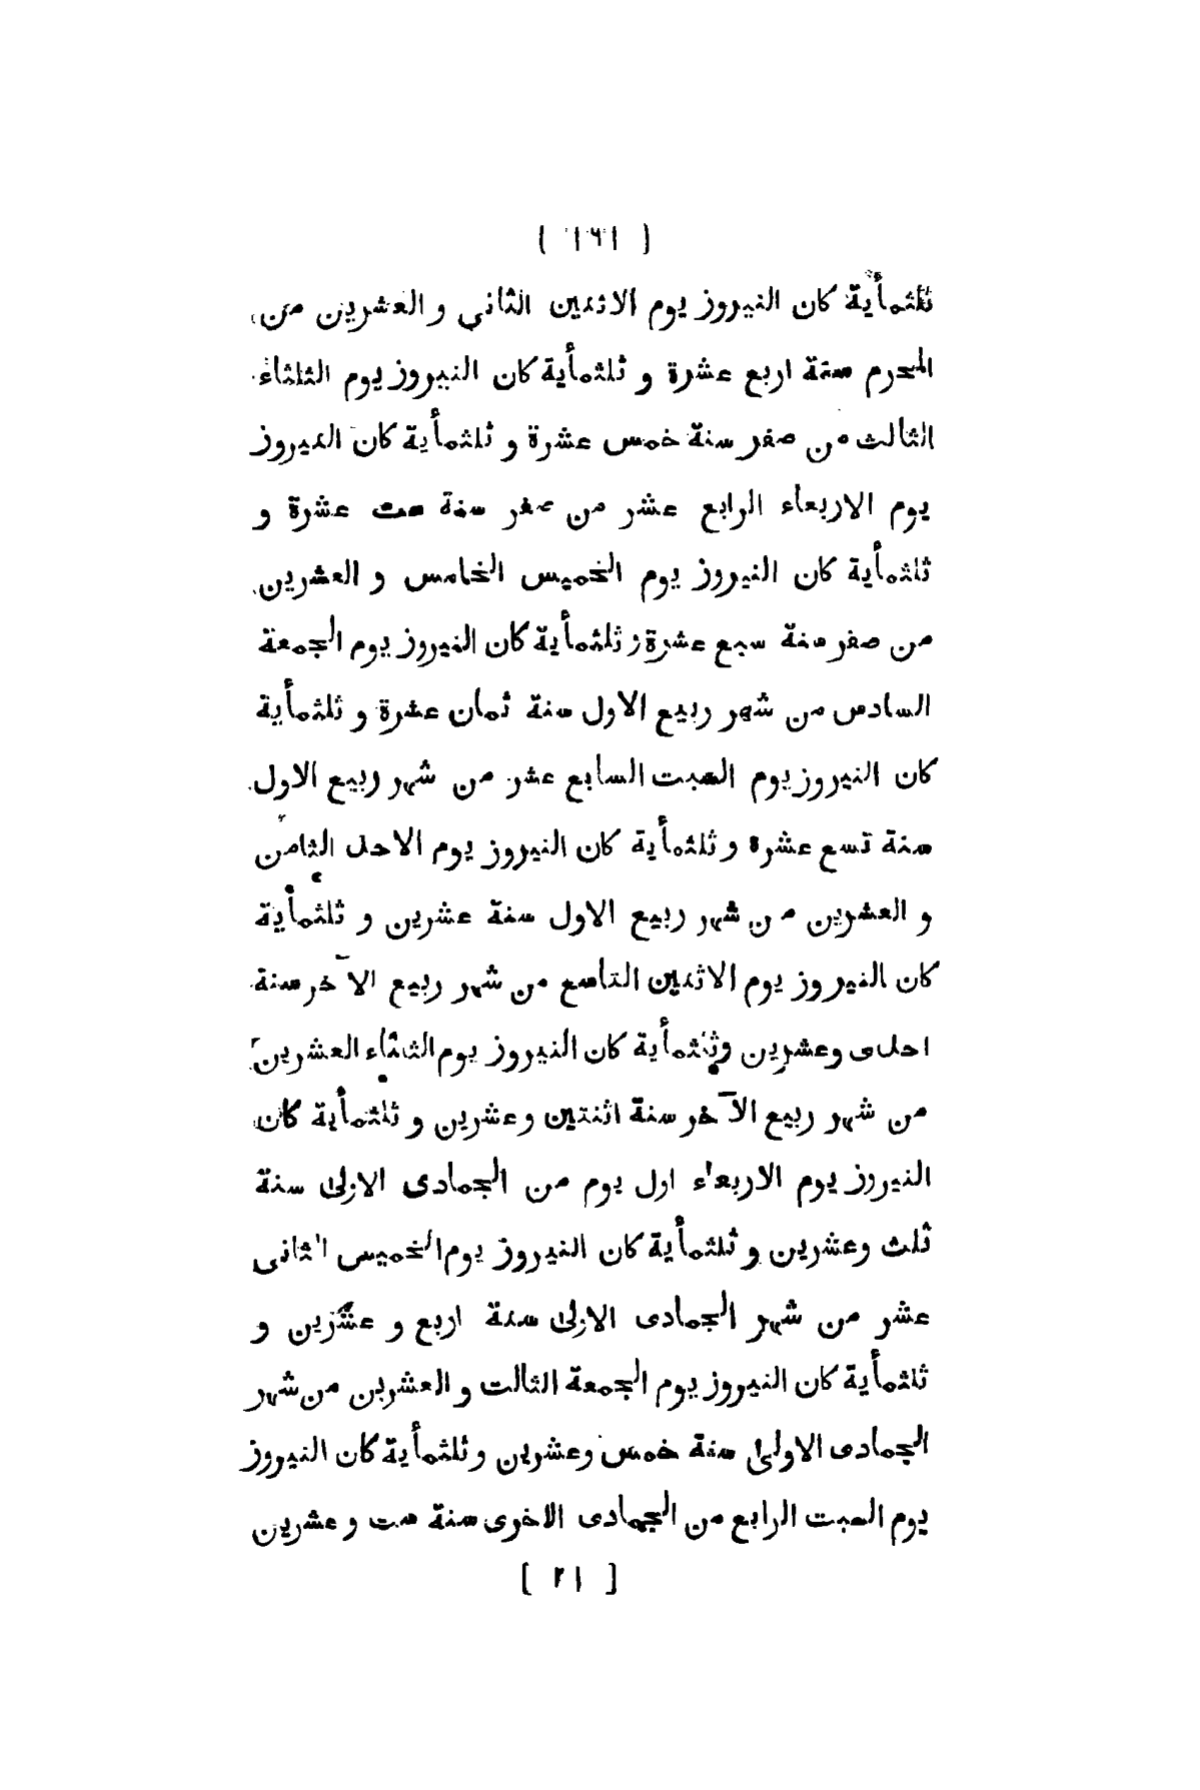 ( ١٦١ )
ثلثمأية كان النيروز يوم الاثنين الثاني و العشرين من
المحرم سنة اربع عشرة و ثلثمأية كان النيروز يوم الثلثاء
الثالث من صفر سنة خمس عشرة و ثلثمأية كان النيروز
يوم الاربعاء الرابع عشر من صفر سنة ست عشرة و
ثلثمأية كان النيروز يوم الخميس الخامس و العشرين
من صفر سنة سبع عشرة و ثلثمأية كان النيروز يوم الجمعة
السادس من شهر ربيع الاول سنة ثمان عشرة و ثلثمأية
كان النيروز يوم السبت السابع عشر من شهر ربيع الاول
سنة تسع عشرة و ثلثمأية كان النيروز يوم الاحد الثامن
و العشرين من شهر ربيع الاول سنة عشرين و ثلثمأية
كان النيروز يوم الاثنين التاسع من شهر ربيع الآخر سنة
احدى وعشرين وثلثمأية كان النيروز يوم الثلثاء العشرين
من شهر ربيع الآخر سنة اثنتين وعشرين و ثلثمأية كان
النيروز يوم الاربعاء اول يوم من الجمادى الاولى سنة
ثلث وعشرين و ثلثمأية كان النيروز يوم الخميس الثانى
عشر من شهر الجمادى الاولى سنة اربع و عشرين و
ثلثمأية كان النيروز يوم الجمعة الثالث و العشرين من شهر
الجمادى الاولى سنة خمس وعشرين و ثلثمأية كان النيروز
يوم السبت الرابع من الجمادى الاخرى سنة ست و عشرين
[ ٢١ ]